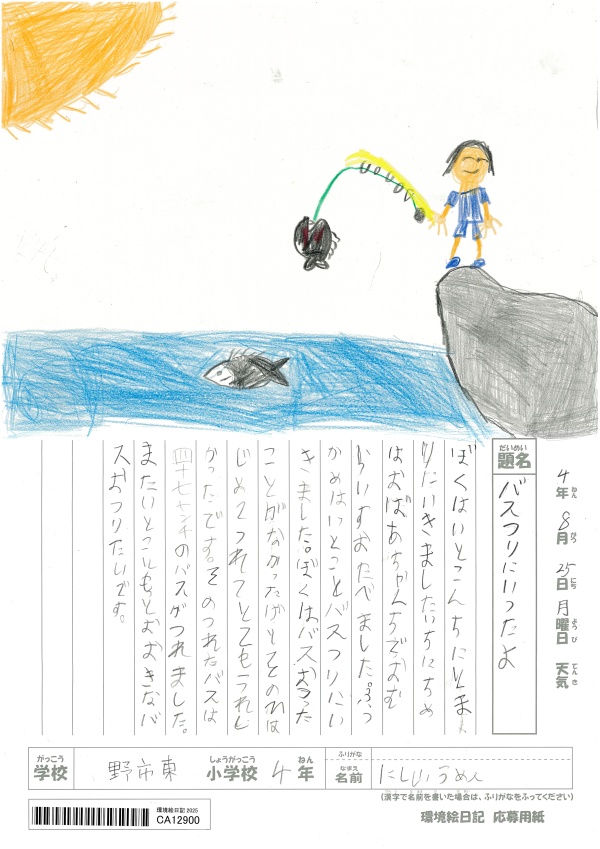 4年 8月 25日 月曜日 天気
ねん がつ にち ようび てんき
だいめい
題名 バスつりにいったよ
ぼくはいとこんちにとま
りにいきました。いちにちめ
はおばあちゃんちでおむ
らいすおたべました。ふつ
かめはいとことバスつりにい
きました。ぼくはバスおつった
ことがなかったけど
じめてつれてとてもうれし
かったです。そのつれたバスは
四十七センチのバスがつれました。
またいとこともっとおおきなバ
スおつりたいです。
がっこう しょうがっこう ねん ふりがな
学校 野市東 小学校 4年 名前
なまえ
(漢字で名前を書いた場合は、ふりがなをふってください)
環境絵日記 2025
CA12900
環境絵日記 応募用紙